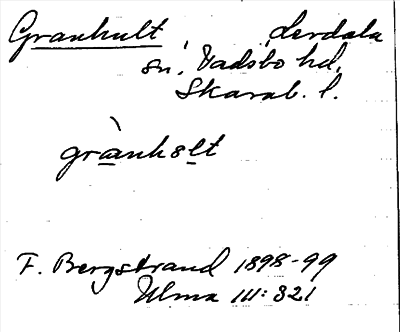 Granhult, derdala
sn, Vadsbo hd,
Skarab. l.
grànhslt
F. Bergstrand 1898-99
Ulma 111:321